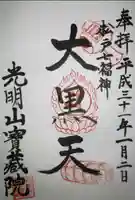 奉拝 平成二十一年一月二日
松戸七福神
大黒天
光明山寶蔵院